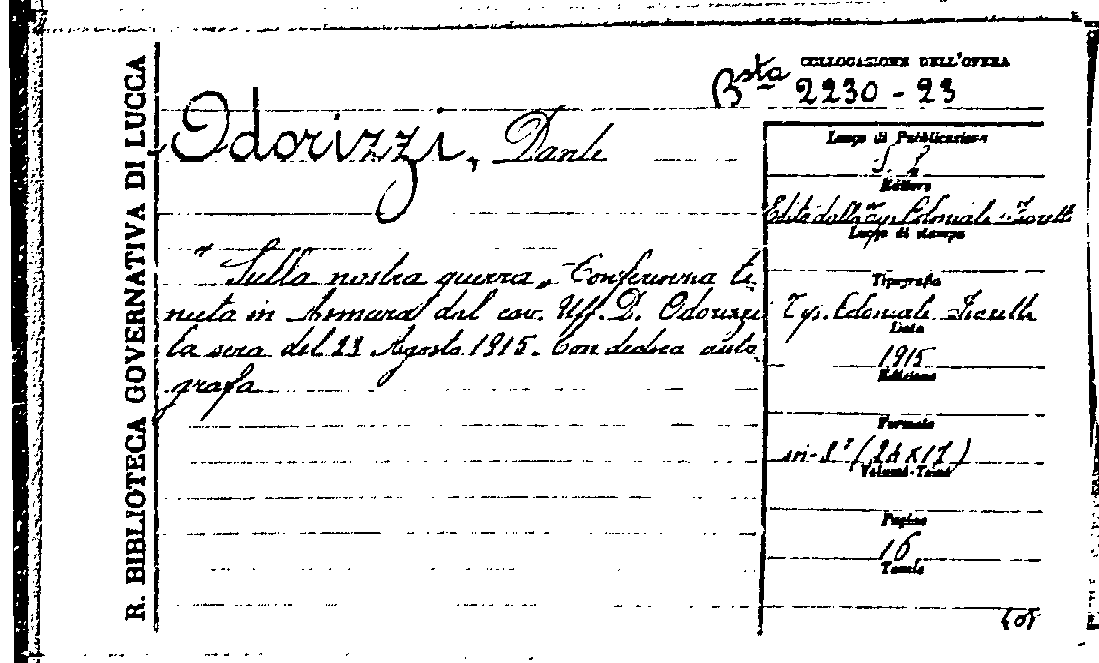 R. BIBLIOTECA GOVERNATIVA DI LUCCA
COLLOCAZIONE DELL'OPERA
Bsta 2230-23
Odorizzi, Dante
"Sulla nostra guerra„ Conferenza te
nuta in Asmara dal cav. Uff. D. Odorizzi
la sera del 23 Agosto 1915. Con dedica auto
grafa
Luogo di Pubblicazione
Editore
Edito dalla Tip. Coloniale Fioretti
Luogo di stampa
Tipografia
Tip. Coloniale Fioretti
Data
1915
Edizione
Formato
in-8° (24x17)
Volumi-Tomi
Pagine
16
Tavole